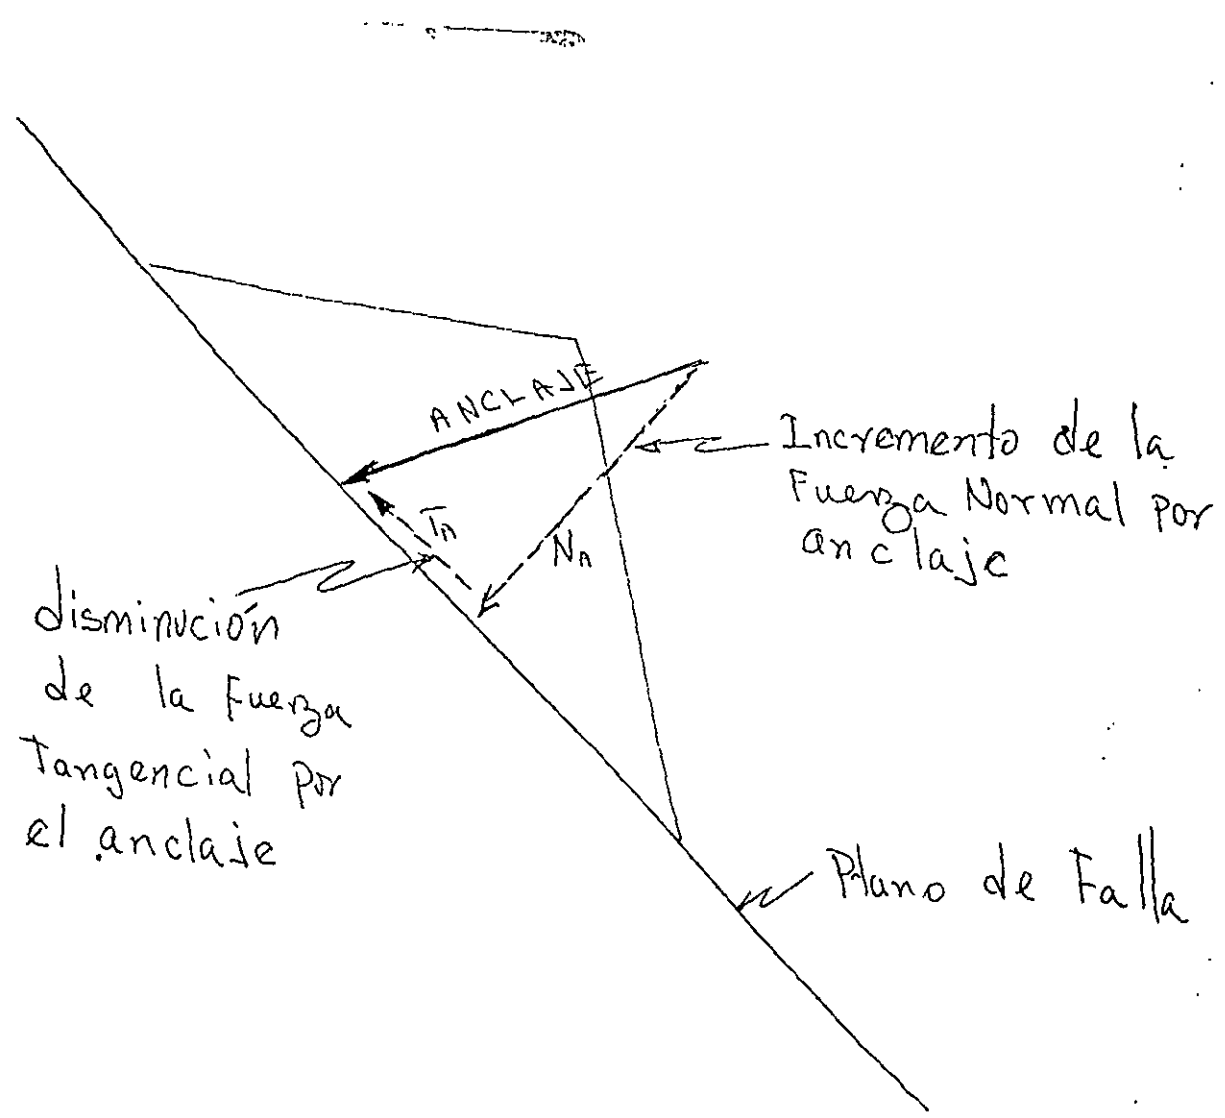 ANCLAJE
Incremento de la
Fuerza Normal por
anclaje
TA
NA
disminución
de la Fuerza
Tangencial por
el anclaje
Plano de Falla